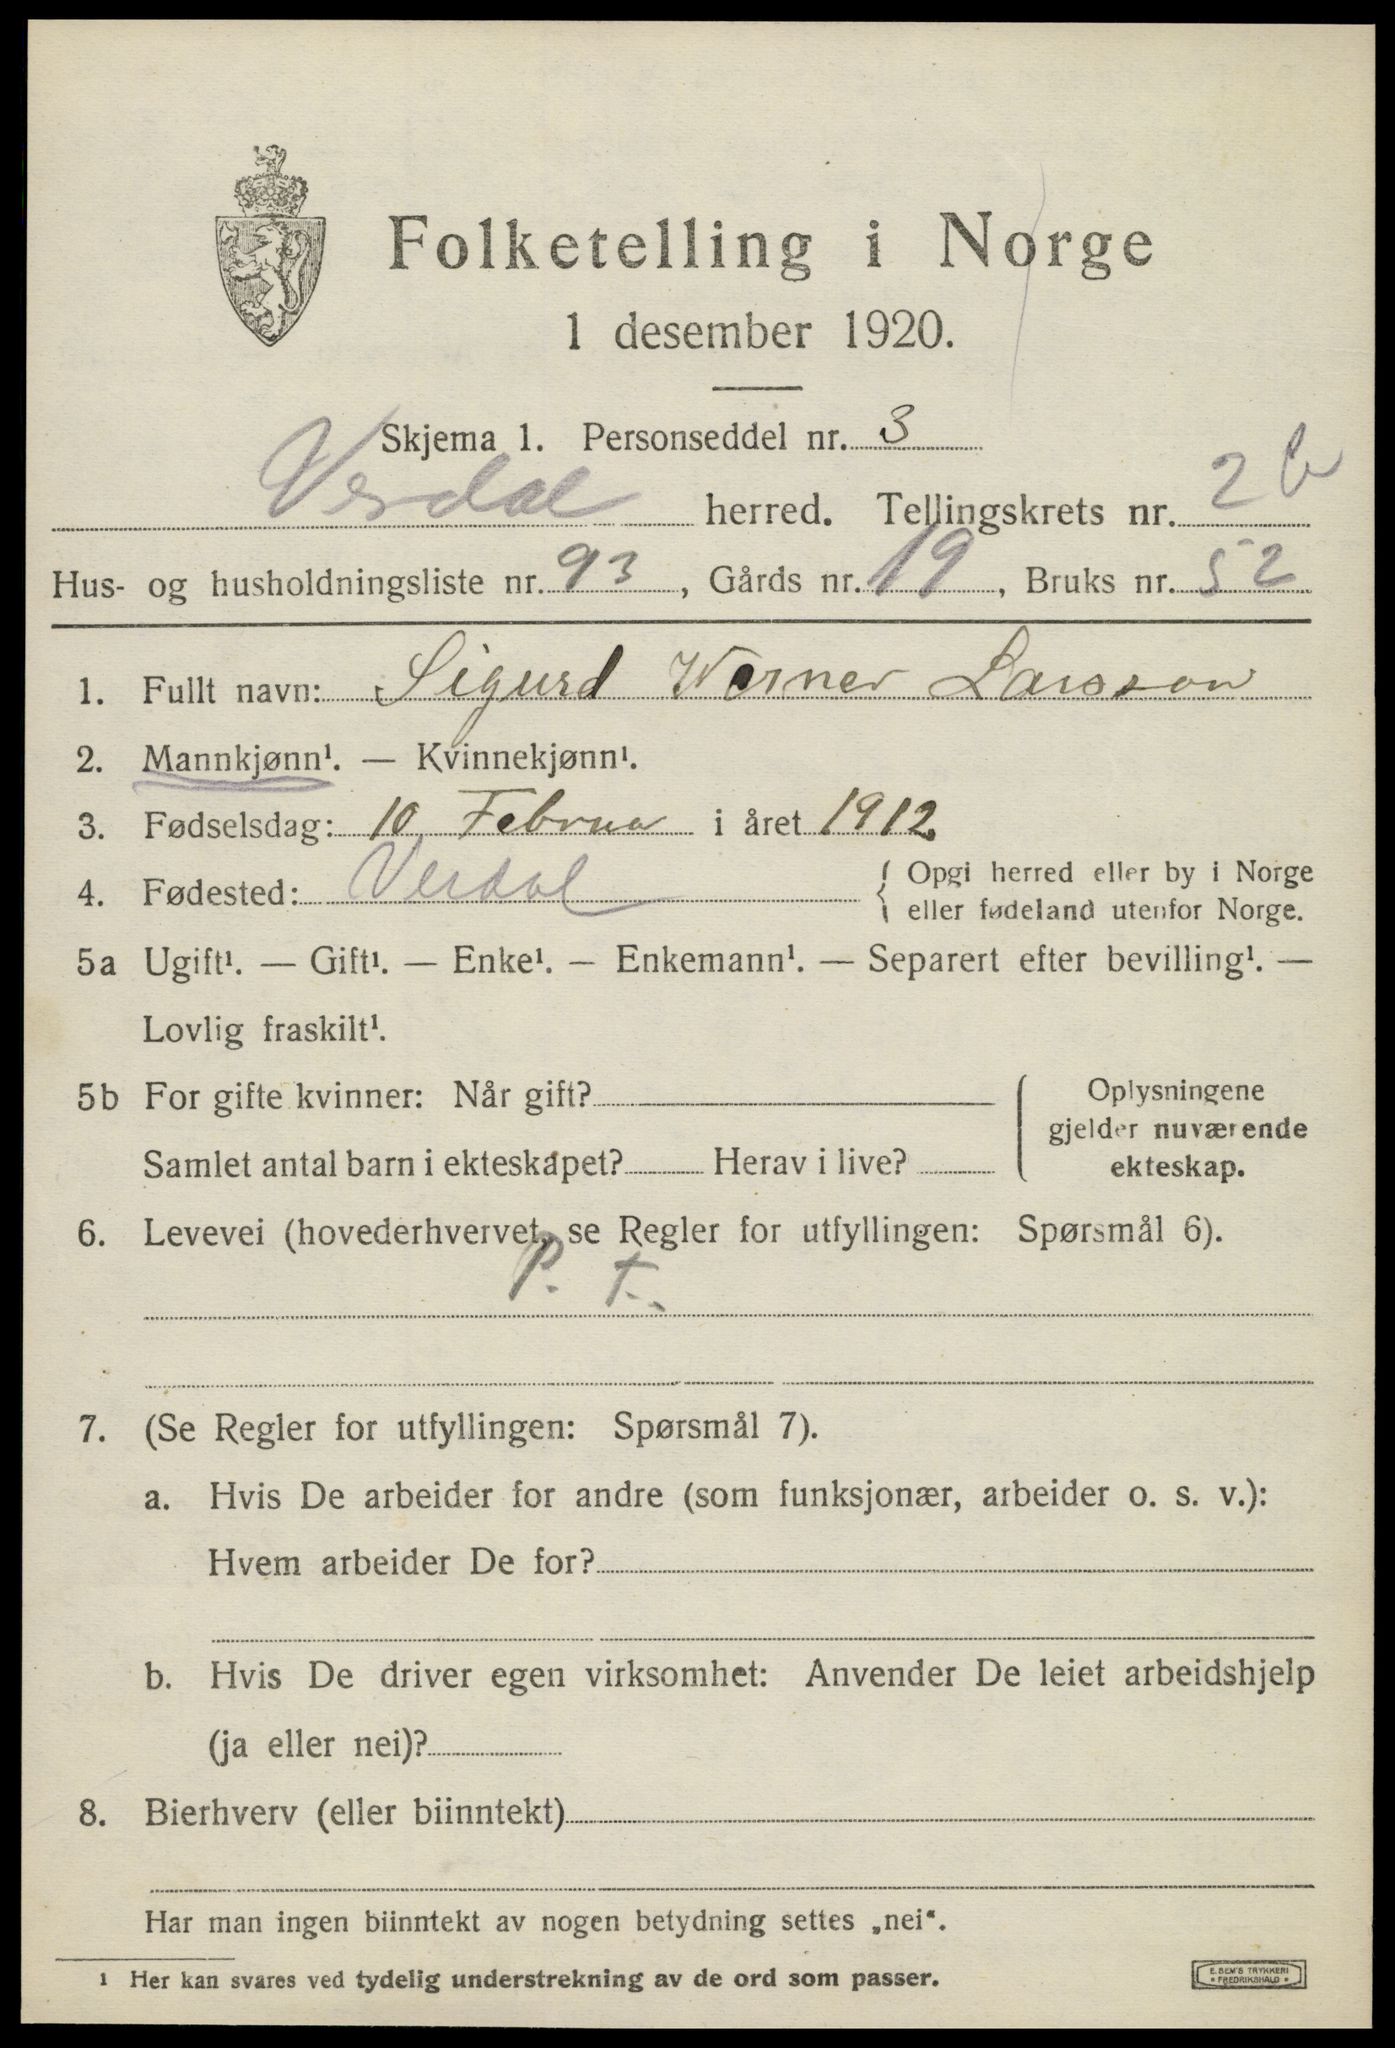 Folketelling i Norge
1 desember 1920.
Skjema 1. Personseddel nr. 3
Verdal herred. Tellingskrets nr. 2 b
Hus- og husholdningsliste nr. 93, Gårds nr. 19, Bruks nr. 52
1. Fullt navn: Sigurd Werner Larsson
2. Mannkjønn¹. — Kvinnekjønn¹.
3. Fødselsdag: 10 Februa i året 1912
4. Fødested: Verdal { Opgi herred eller by i Norge
eller fødeland utenfor Norge.
5a Ugift¹. — Gift¹. — Enke¹. — Enkemann¹. — Separert efter bevilling¹. —
Lovlig fraskilt¹.
5b For gifte kvinner: Når gift?
Samlet antal barn i ekteskapet? Herav i live?
Oplysningene
gjelder nuværende
ekteskap.
6. Levevei (hovederhvervet, se Regler for utfyllingen: Spørsmål 6).
P. T.
7. (Se Regler for utfyllingen: Spørsmål 7).
a. Hvis De arbeider for andre (som funksjonær, arbeider o. s. v.):
Hvem arbeider De for?
b. Hvis De driver egen virksomhet: Anvender De leiet arbeidshjelp
(ja eller nei)?
8. Bierhverv (eller biinntekt)
Har man ingen biinntekt av nogen betydning settes „nei“.
¹ Her kan svares ved tydelig understrekning av de ord som passer.
E. SEM'S TRYKKERI
• FREDRIKSHALD •